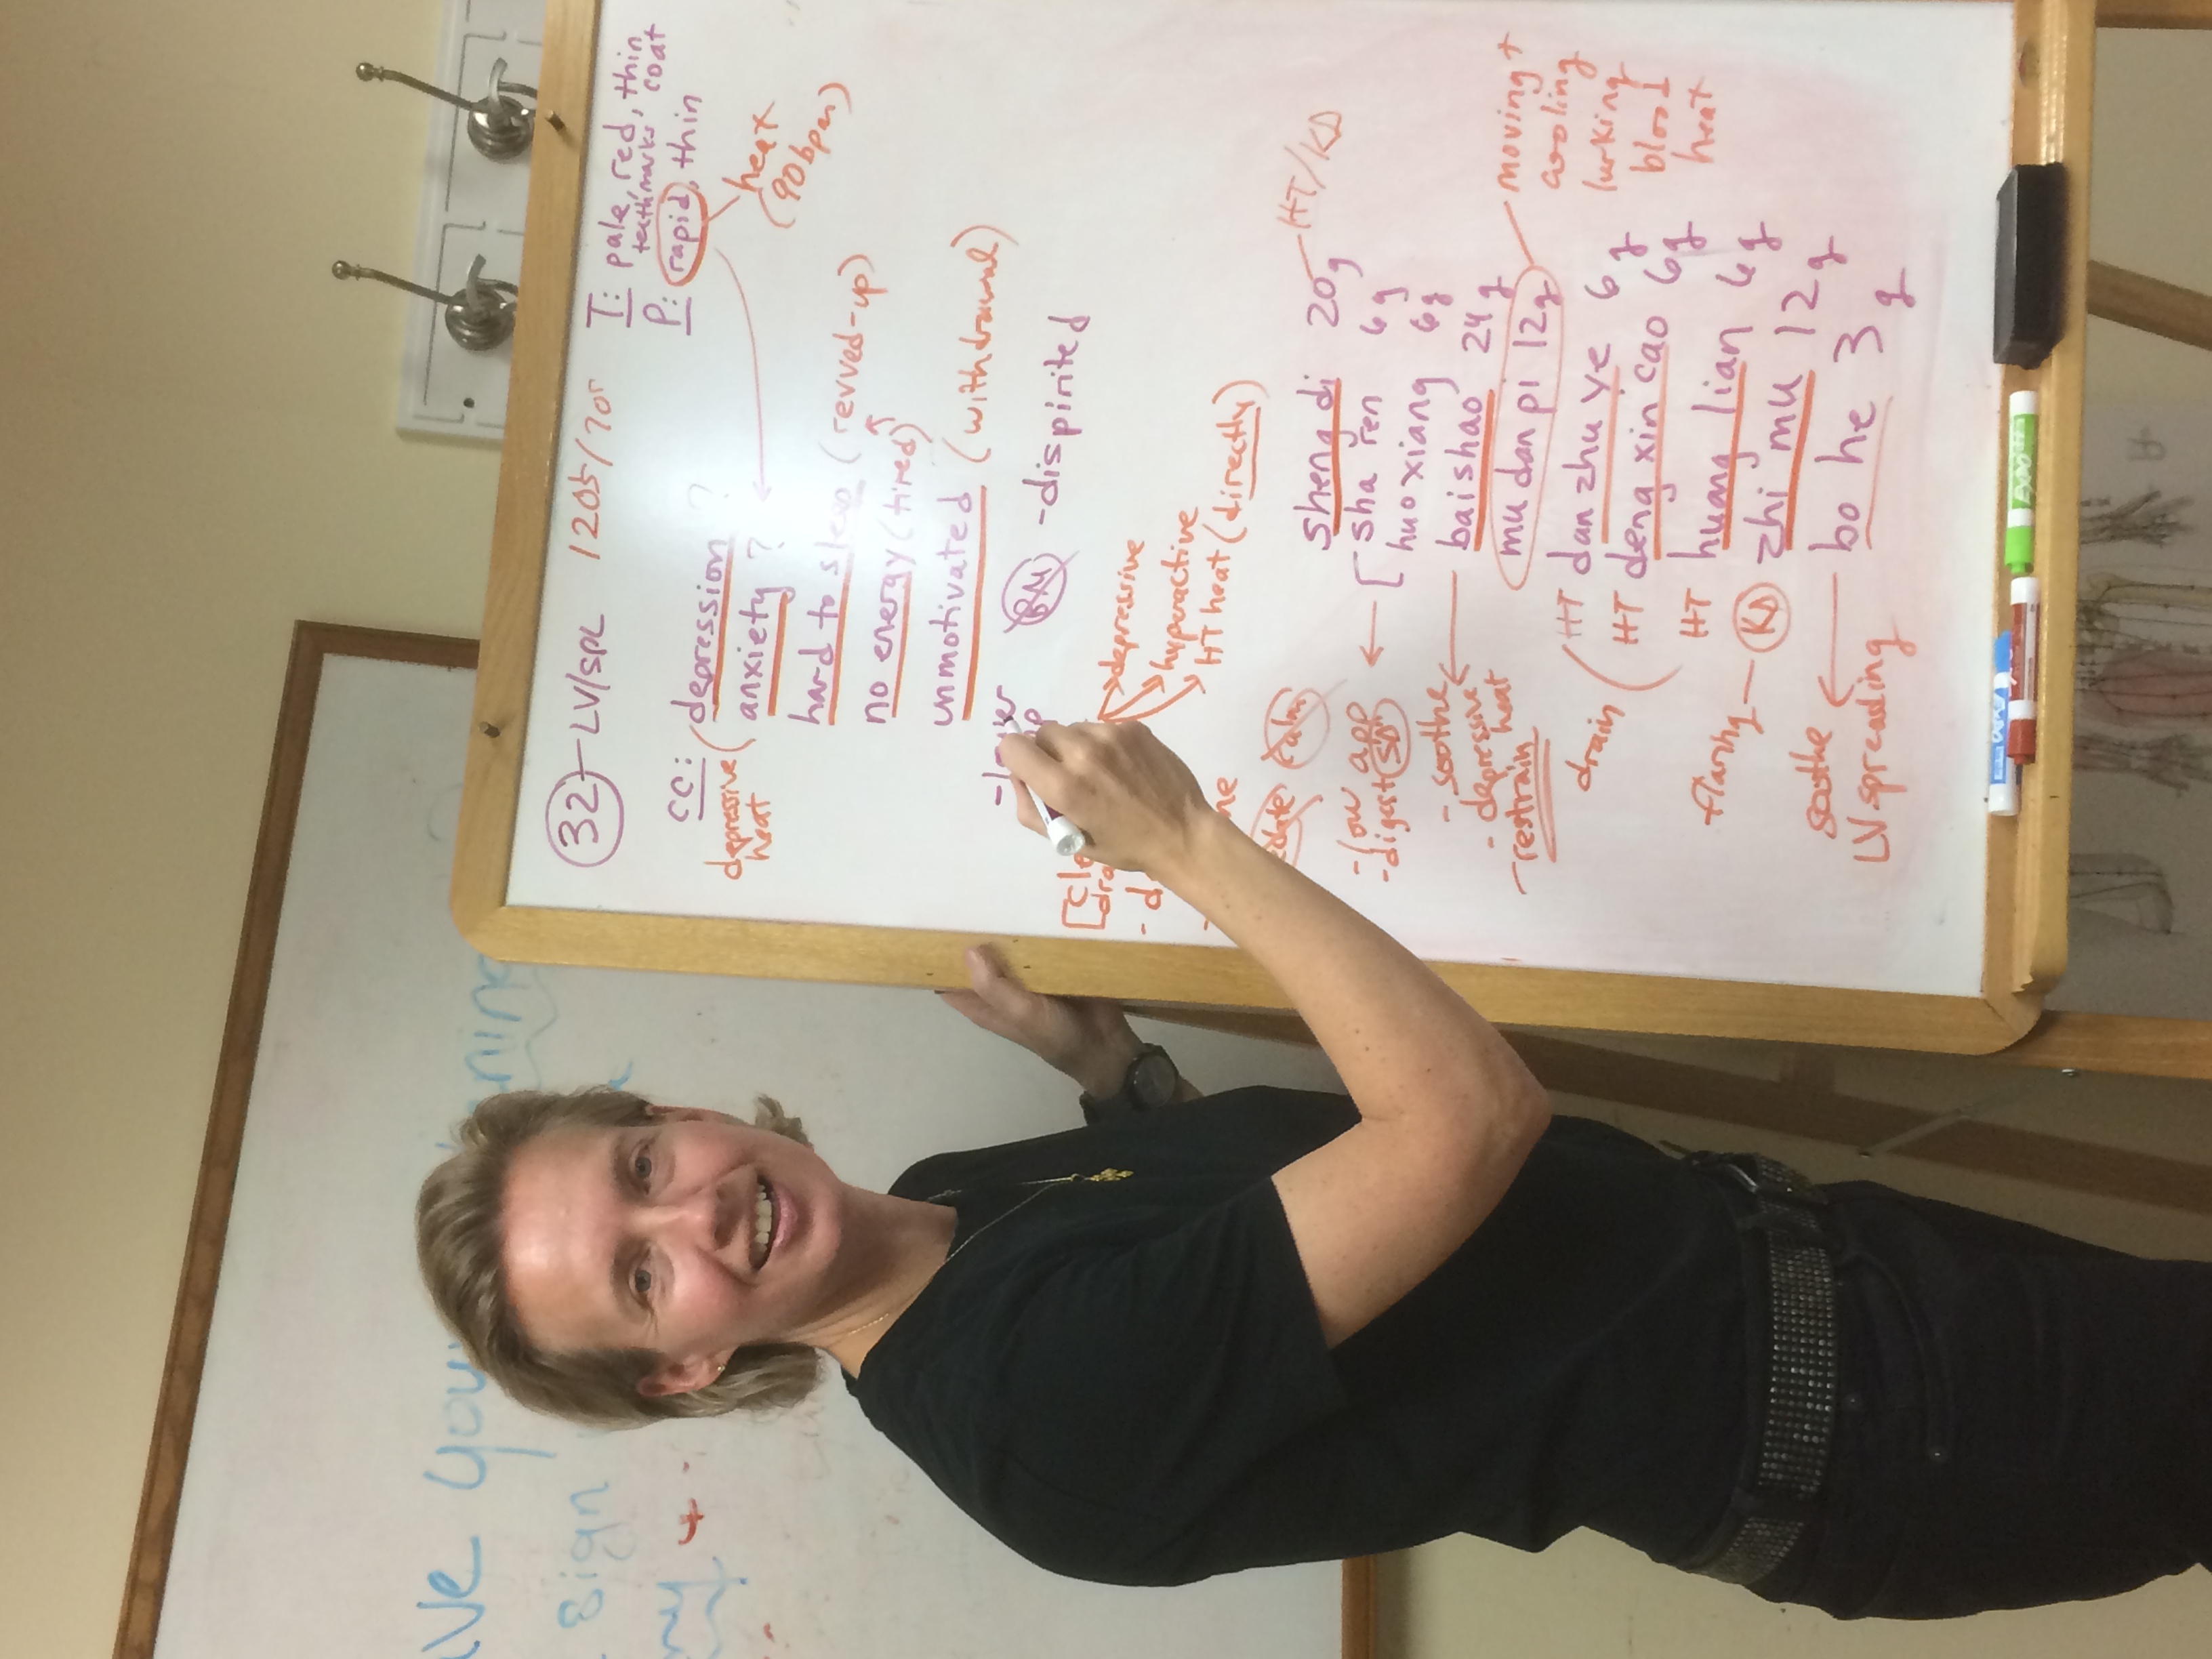 32 - LV/SPL 120S/70s T: pale, red, thin
teethmarks coat
P: rapid, thin
heat
(90 bpm)
CC: depression ?
depressive
heat
anxiety ?
hard to sleep (revved-up)
no energy (tired)
unmotivated (withdrawal)
BM - dispirited
depressive
hyperactive
HT heat (directly)
calm
sheng di 20g - HT/KD
- low app
- digest
[ sha ren 6g
huo xiang 6g
- soothe
- depressive
heat
- restrain
bai shao 24g
mu dan pi 12g
moving +
cooling
lurking
blood
heat
drain
HT dan zhu ye 6g
HT deng xin cao 6g
HT huang lian 6g
flaring - KD zhi mu 12g
soothe
LV spreading
bo he 3g
EXPO
sign